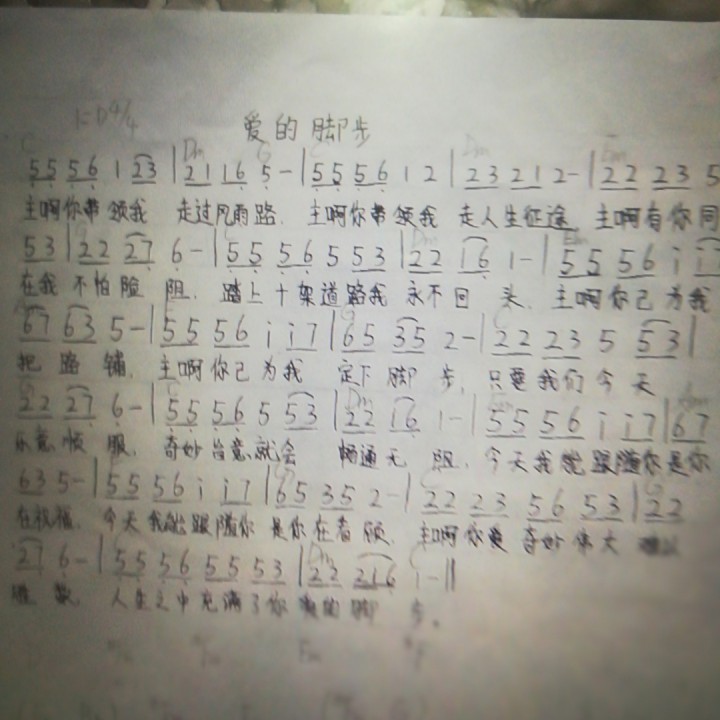 1=D 4/4
爱的脚步
5 5 5 6 1 23 | 21 16 5 - | 55 56 1 2 | 23 21 2 - | 22 23 5
主啊你带领我 走过风雨路. 主啊你带领我 走人生征途. 主啊有你同
53 | 22 27 6 - | 55 56 5 53 | 22 16 1 - | 55 56 i i7
在我不怕险阻. 踏上十架道路我永不回头. 主啊你已为我
67 63 5 - | 55 56 i i7 | 65 35 2 - | 22 23 5 53 |
把路铺, 主啊你已为我 定下脚步, 只要我们今天
22 27 6 - | 55 56 5 53 | 22 16 1 - | 55 56 i i7 | 67
乐意顺服, 奇妙旨意就会 畅通无阻. 今天我能跟随你是你
63 5 - | 55 56 i i7 | 65 35 2 - | 22 23 56 53 | 22
在祝福, 今天我能跟随你 是你在看顾. 主啊你爱奇妙伟大
27 6 - | 55 56 55 53 | 22 216 1 - ||
人生之中充满了你 的脚步.